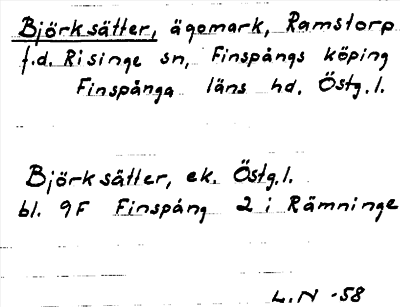 Björksätter, ägomark, Ramstorp
f.d. Risinge sn, Finspångs köping
Finspånga läns hd. Östg.l.
Björksätter, ek. Östg.l.
bl. 9F Finspång 2 i Rämninge
L.N -58